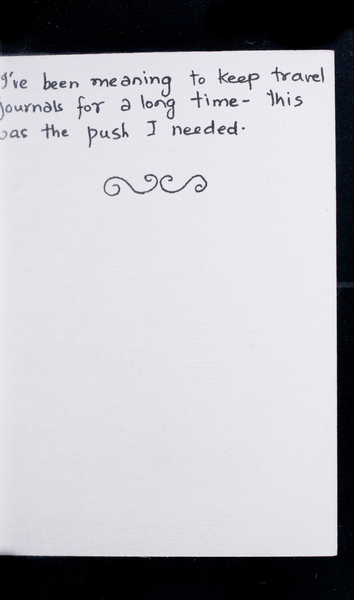 I've been meaning to keep travel
journals for a long time - this
was the push I needed.